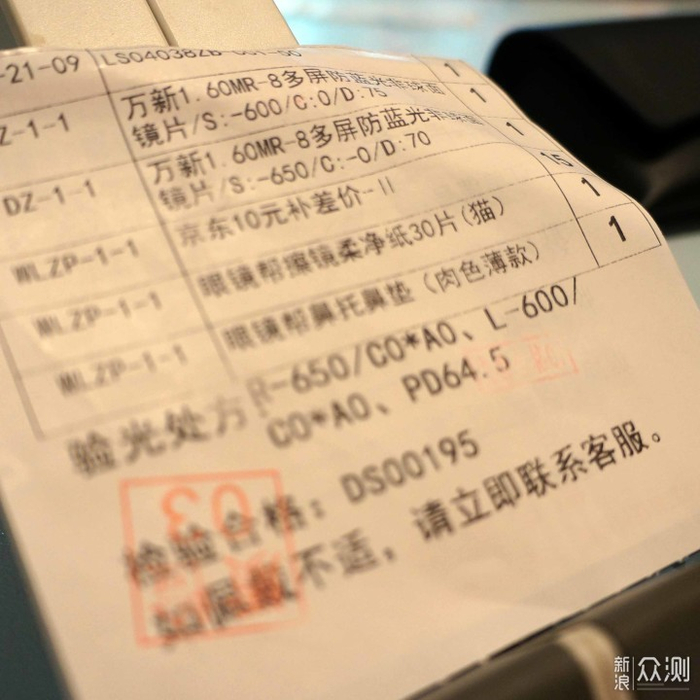 -21-09 LS040382B-001-00 1
Z-1-1 万新1.60MR-8多屏防蓝光非球面 1
镜片/S:-600/C:0/D:75
DZ-1-1 万新1.60MR-8多屏防蓝光非球面 1
镜片/S:-650/C:-0/D:70
WLZP-1-1 京东10元补差价-II 15
WLZP-1-1 眼镜帮擦镜柔净纸30片(猫) 1
WLZP-1-1 眼镜帮鼻托鼻垫(肉色薄款) 1
验光处方 R-650/C0*A0、L-600/
C0*A0、PD64.5
检验合格: DS00195
如佩戴不适，请立即联系客服。
03
新浪 众测